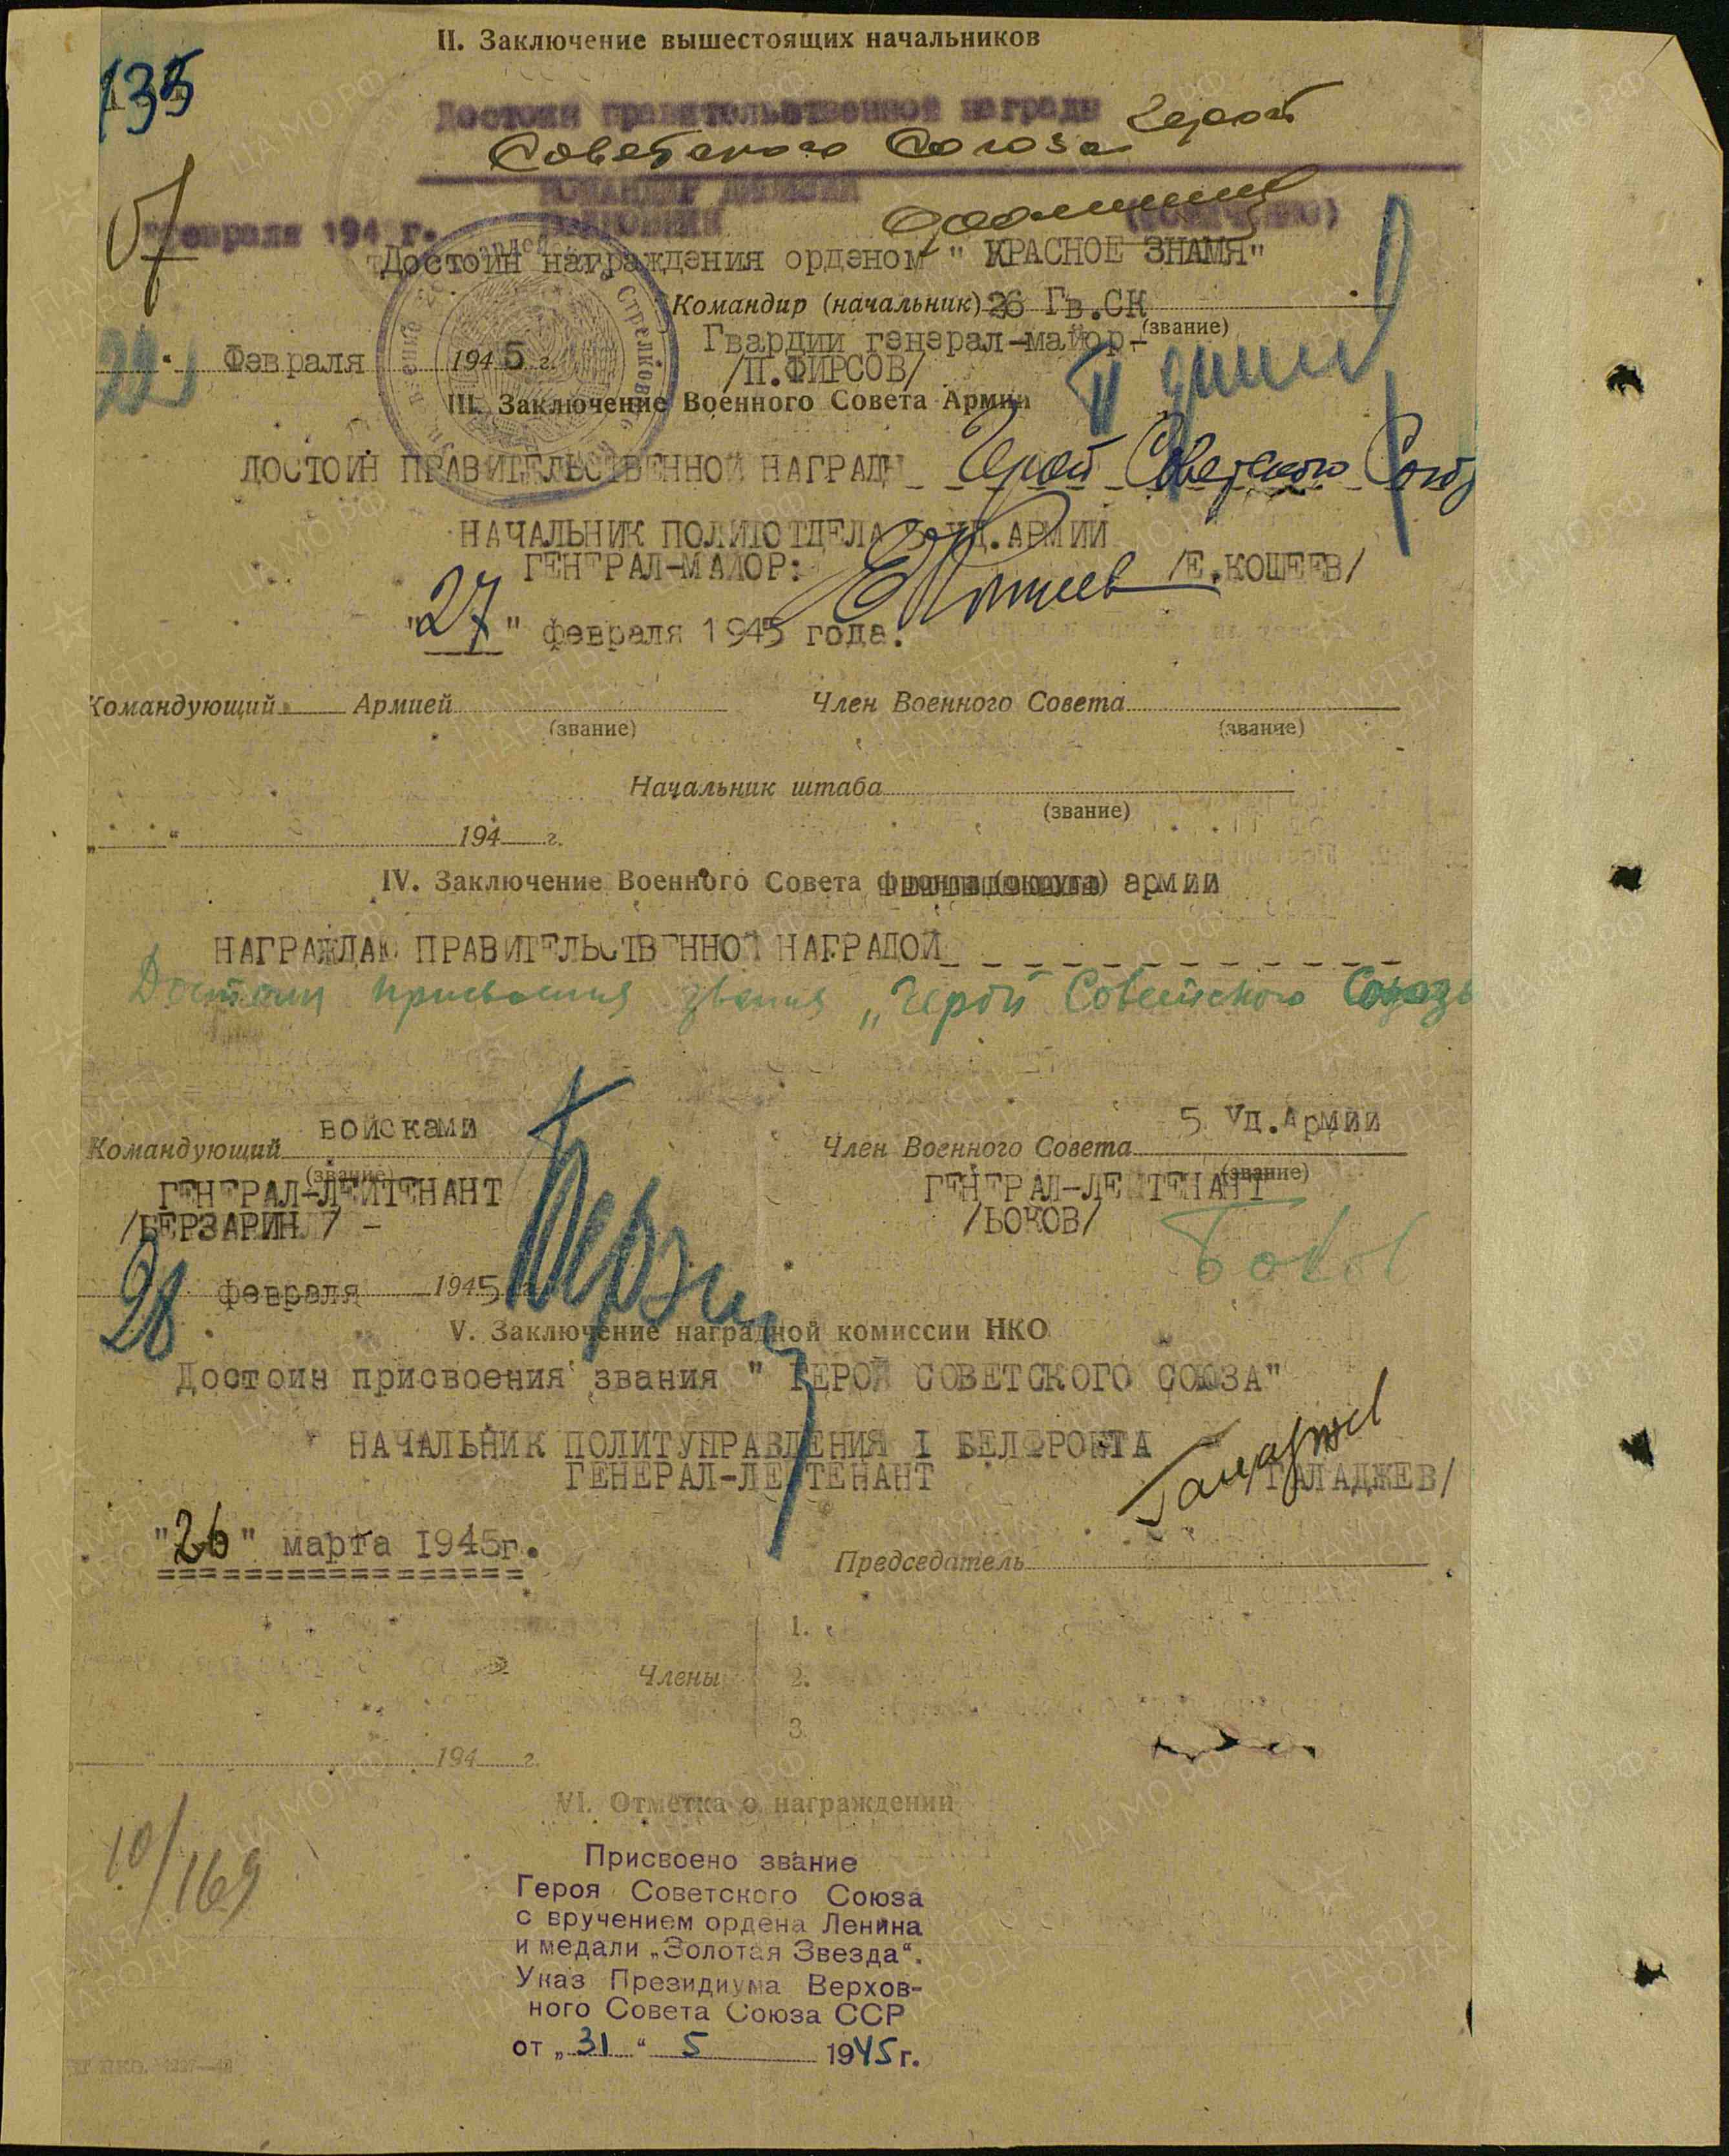 II. Заключение вышестоящих начальников
135
Достоин правительственной награды Герой
Советского Союза
КОМАНДИР ДИВИЗИИ
февраля 194 г. ПОЛКОВНИК
Достоин награждения орденом " КРАСНОЕ ЗНАМЯ"
Командир (начальник) 26 Гв.СК
(звание)
Гвардии генерал-майор-
22 Февраля 1945 г.
/П.ФИРСОВ/
III. Заключение Военного Совета Армии
ДОСТОИН ПРАВИТЕЛЬСТВЕННОЙ НАГРАДЫ Герой Советского Союз
НАЧАЛЬНИК ПОЛИТОТДЕЛА 5 УД.АРМИИ
ГЕНЕРАЛ-МАЙОР: ЕКощеев /Е.КОЩЕЕВ/
"27" февраля 1945 года.
Командующий Армией Член Военного Совета
(звание) (звание)
Начальник штаба
(звание)
„ “ 194 г.
IV. Заключение Военного Совета фронта (округа) армии
НАГРАЖДАЮ ПРАВИТЕЛЬСТВЕННОЙ НАГРАДОЙ
Достоин присвоения звания „Герой Советского Союза
войсками 5 Уд.Армии
Командующий Член Военного Совета
(звание) (звание)
ГЕНЕРАЛ-ЛЕЙТЕНАНТ ГЕНЕРАЛ-ЛЕЙТЕНАНТ
/БЕРЗАРИН / - /БОКОВ/
Боков
28 февраля 1945
V. Заключение наградной комиссии НКО
Достоин присвоения звания " ГЕРОЙ СОВЕТСКОГО СОЮЗА"
НАЧАЛЬНИК ПОЛИТУПРАВЛЕНИЯ I БЕЛФРОНТА
ГЕНЕРАЛ-ЛЕЙТЕНАНТ Галаджев ГАЛАДЖЕВ/
"26" марта 1945г.
Председатель
1.
Члены 2.
3.
194 г.
VI. Отметка о награждении
10/169
Присвоено звание
Героя Советского Союза
с вручением ордена Ленина
и медали „Золотая Звезда“.
Указ Президиума Верхов-
ного Совета Союза ССР
от „31“ 5 1945 г.